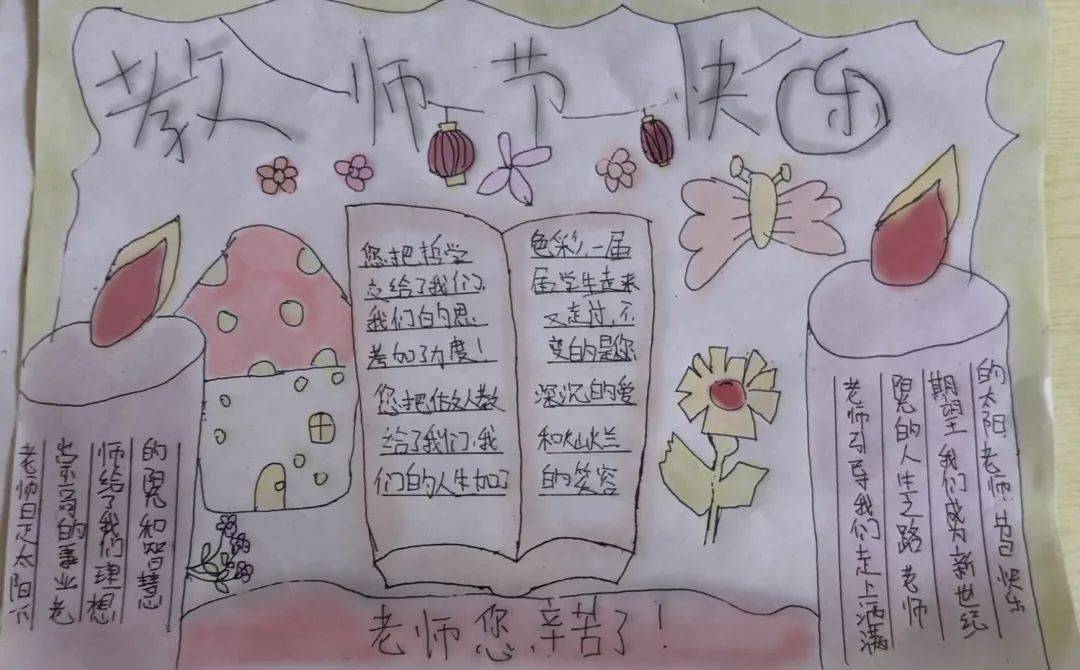 教师节快乐
您把哲学
之给了我们,
我们的思
考加了力度!
您把做人教
给了我们,我
们的人生加了
色彩,一届
届学生走来
又走过,不
变的是您
深沉的爱
和灿烂
的笑容
老师是太阳底
崇高的事业老
师给了我们理想
的阳光和智慧
老师引导我们走上洒满
阳光的人生之路老师
期望我们成为新世纪
的太阳老师节日快乐
老师您辛苦了!